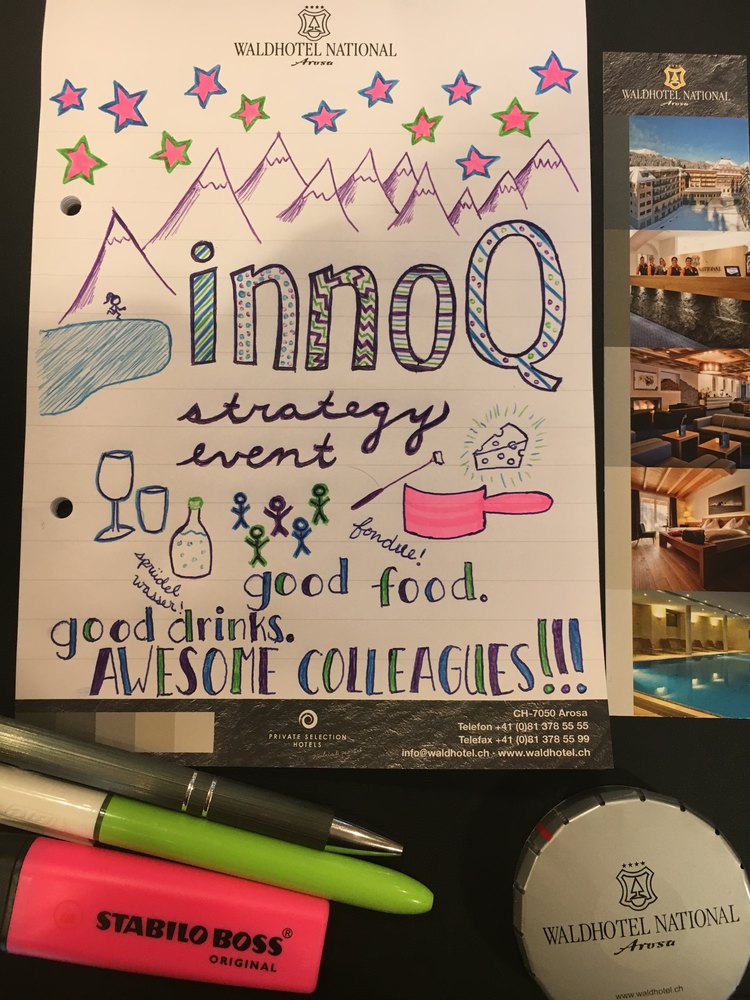 WALDHOTEL NATIONAL
Arosa
innoQ
strategy
event
fondue!
sprüdel
wasser!
good food.
good drinks.
AWESOME COLLEAGUES!!!
PRIVATE SELECTION
HOTELS
CH-7050 Arosa
Telefon +41 (0)81 378 55 55
Telefax +41 (0)81 378 55 99
info@waldhotel.ch · www.waldhotel.ch
WALDHOTEL NATIONAL
Arosa
NATIONAL
STABILO BOSS®
ORIGINAL
WALDHOTEL NATIONAL
Arosa
www.waldhotel.ch